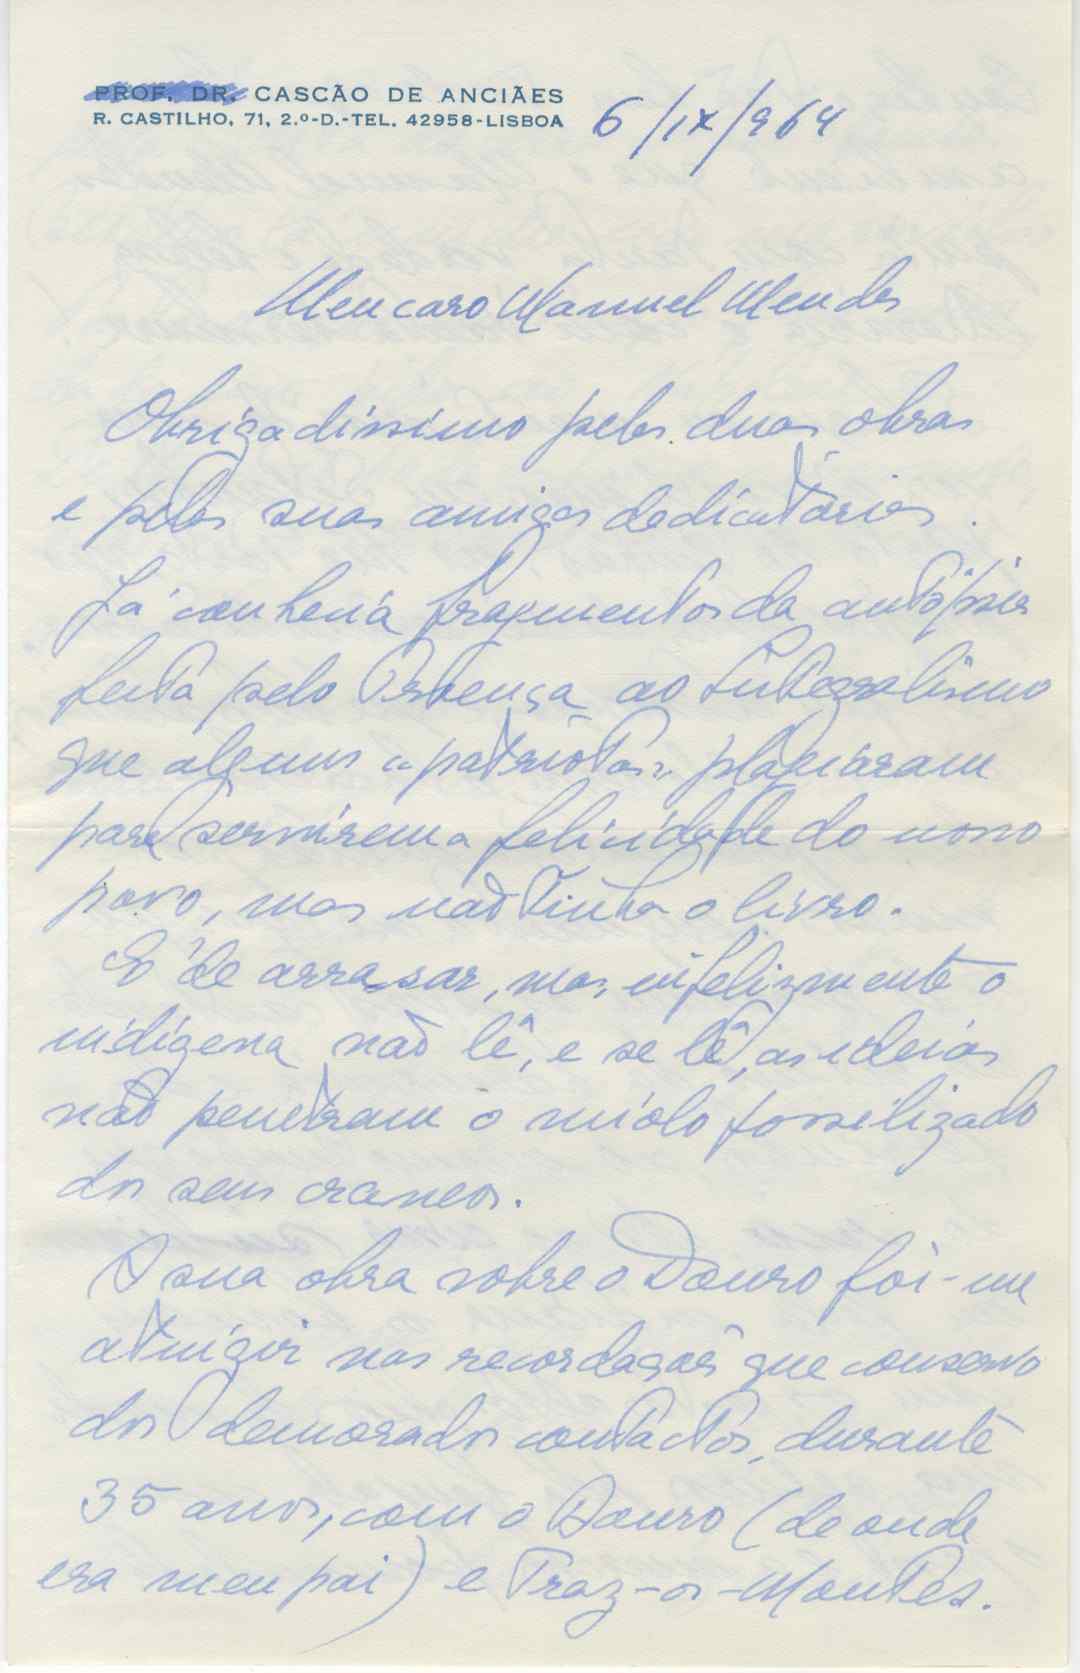 PROF. DR. CASCÃO DE ANCIÃES
R. CASTILHO, 71, 2.º-D.-TEL. 42958-LISBOA
6/IX/964
Meu caro Manuel Mendes
Obrigadissimo pelas duas obras
e pelas suas amigas dedicatórias.
Já conhecia fragmentos da autópsia
feita pelo Proença ao Integralismo
que alguns "patriotas" plagiaram
para servirem a felicidade do nosso
povo, mas não tinha o livro.
É de arrasar, mas, infelizmente o
indígena não lê, e se lê, as ideias
não penetram o miolo fossilizado
dos seus craneos.
A sua obra sobre o Douro foi-me
atingir nas recordações que conservo
dos demorados contactos, durante
35 anos, com o Douro (de onde
era meu pai) e Traz-os-Montes.